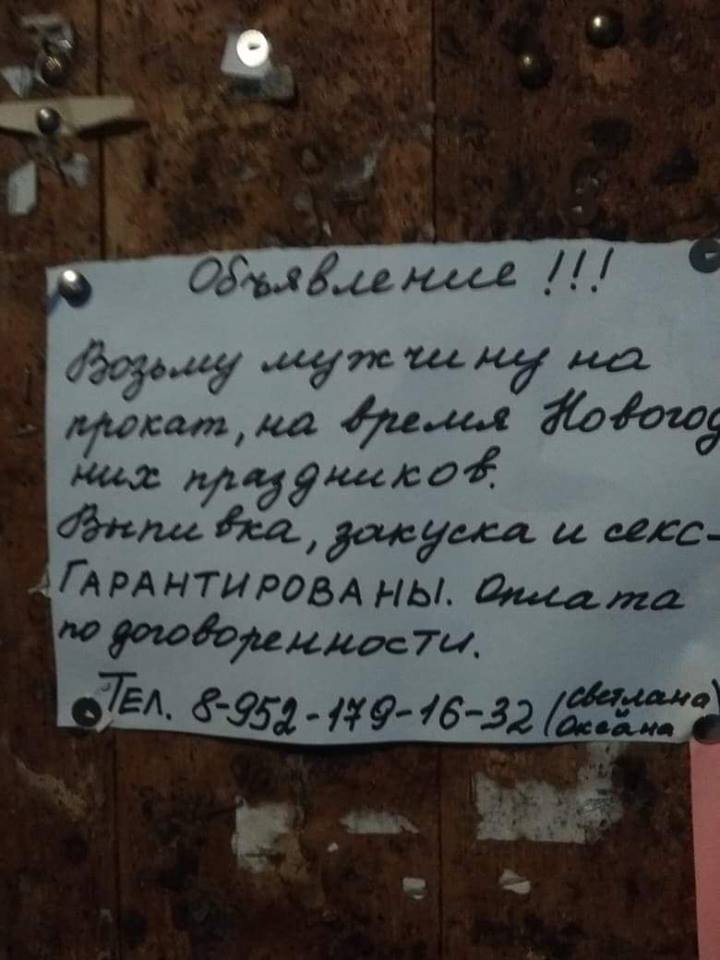 Объявление !!!
Возьму мужчину на
прокат, на время Новогод
них праздников.
Выпивка, закуска и секс-
ГАРАНТИРОВАНЫ. Оплата
по договоренности.
ТЕЛ. 8-952-179-16-32 (Светлана)
Оксана